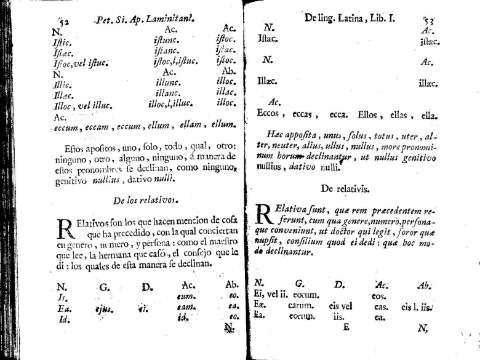 52 Pet. Si. Ap. Laminitani.
N. Ac. Ac.
Istic. istunc. istoc.
Istæc. istanc. istac.
Istoc, vel istuc. istoc, l, istuc. istoc.
N. Ac. Ab.
Illic. illunc. illoc.
Illæc. illanc. illac.
Illoc, vel illuc. illoc, l, illuc. illoc.
Ac.
eccum, eccam, eccum, ellum, ellam, ellum.
Estos apositos, uno, solo, todo, qual, otro:
ninguno, otro, alguno, ninguno, á manera de
estos pronombres se declinan, como ninguno,
genitivo nullius, dativo nulli.
De los relativos.
RElativos son los que hacen mencion de cosa
que ha precedido, con la qual conciertan
en genero, numero, y persona: como el maestro
que lee, la hermana que casó, el consejo que le
dí: los quales de esta manera se declinan.
N. G. D. Ac. Ab.
Is. eum. eo.
Ea. ejus. ei. eam. ea.
Id. id. eo.
N.
De ling. Latina, Lib. I. 53
N. Ac.
Istac. istæc.
N. Ac.
Illæc. illæc.
Ac.
Eccos, eccas, ecca. Ellos, ellas, ella.
Hæc apposita, unus, solus, totus, uter, al-
ter, neuter, alius, ullus, nullus, more pronomi-
num horum declinantur, ut nullus genitivo
nullius, dativo nulli.
De relativis.
RElativa sunt, quæ rem præcedentem re-
ferunt, cum qua genere, numero, persona-
que conveniunt, ut doctor qui legit, soror quæ
nupsit, consilium quod ei dedi: quæ hoc mo-
do declinantur.
N. G. D. Ac. Ab.
Ei, vel ii. eorum. eos.
Eæ. earum. eis vel eas. eis l. iis.
Ea. eorum. iis. ea.
E N.